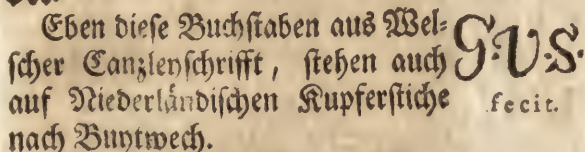 Eben diese Buchstaben aus Wel-
scher Canzleyschrifft, stehen auch
auf Niederländischen Kupferstiche
nach Buytwech.
G·V·S·
fecit.